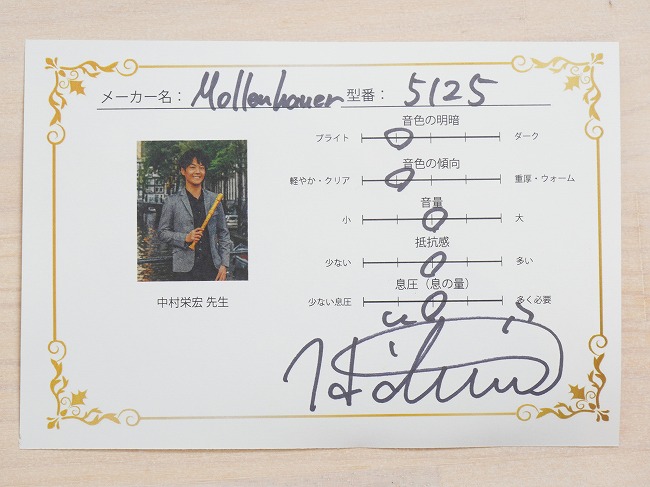 メーカー名： Mollenhauer 型番： 5125
音色の明暗
ブライト ダーク
音色の傾向
軽やか・クリア 重厚・ウォーム
音量
小 大
抵抗感
少ない 多い
息圧（息の量）
少ない息圧 多く必要
中村栄宏 先生